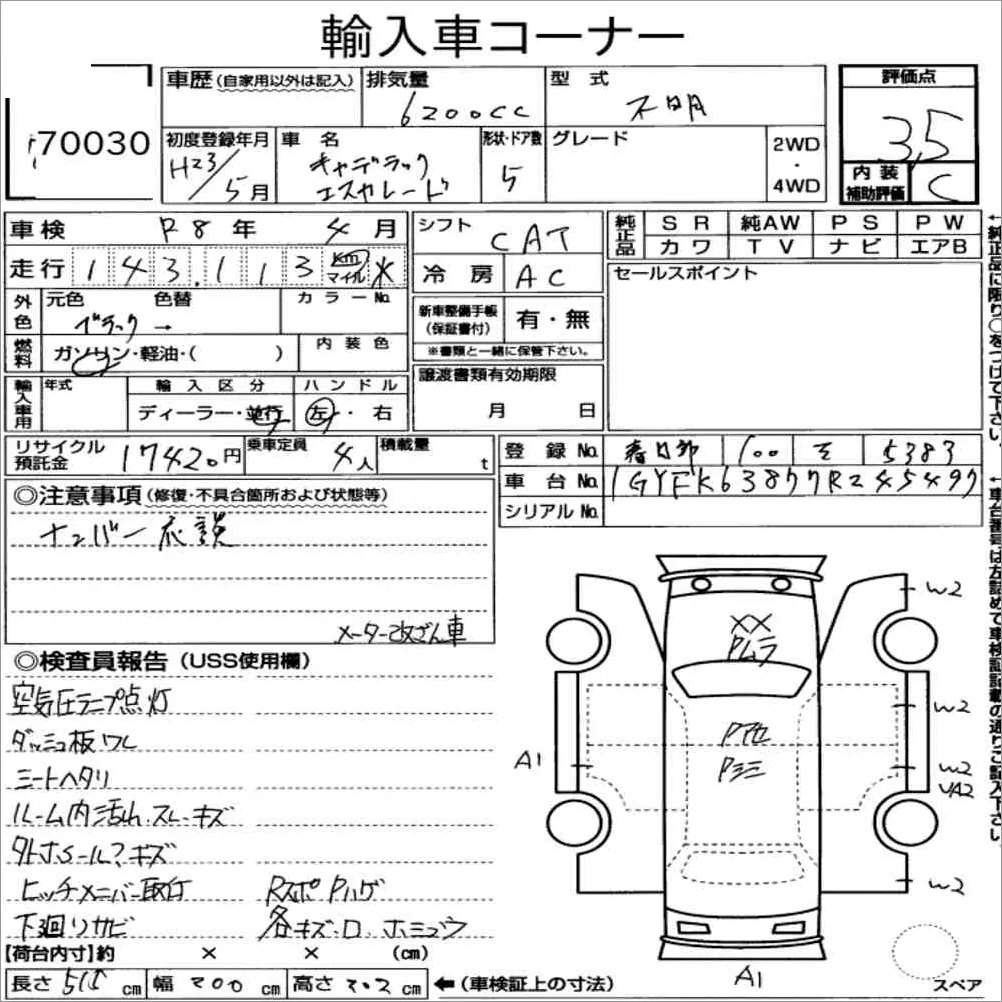 輸入車コーナー
70030
車歴(自家用以外は記入)
排気量 6200cc
型式 不明
評価点 3,5
内装補助評価 C
初度登録年月 H23/5月
車名 キャデラック エスカレード
形状・ドア数 5
グレード
2WD・4WD
車検 R8年 4月
走行 143,113 km マイル ※
シフト CAT
冷房 AC
純正品 SR 純AW PS PW
カワ TV ナビ エアB
←純正品に限り○をつけて下さい。
セールスポイント
外色 元色 色替 カラーNo.
ブラック→
燃料 ガソリン・軽油・( )
内装色
新車整備手帳(保証書付) 有・無
※書類と一緒に保管下さい。
輸入車用 年式 輸入区分 ハンドル
ディーラー・並行 左・右
譲渡書類有効期限
月 日
リサイクル預託金 17420円
乗車定員 4人
積載量 t
登録No. 春日部 100 そ 5383
車台No. 1GYFK63877R245497
シリアルNo.
←車台番号は方詰めで車検証記載の通りご記入下さい。
◎注意事項(修復・不具合箇所および状態等)
ナンバー応談
メーター改ざん車
◎検査員報告(USS使用欄)
空気圧ランプ点灯
ダッシュ板ワレ
シートヘタリ
ルーム内汚れ.スレ.キズ
外ホール?キズ
ヒッチメンバー取付
RスポPハゲ
下廻りサビ
各キズ.ロ.
W2
XX
Pムラ
W2
Pアセ
Pミミ
A1
W2
VA2
W2
A1
スペア
【荷台内寸】約 × × (cm)
長さ 515cm 幅 200cm 高さ 202cm ←(車検証上の寸法)